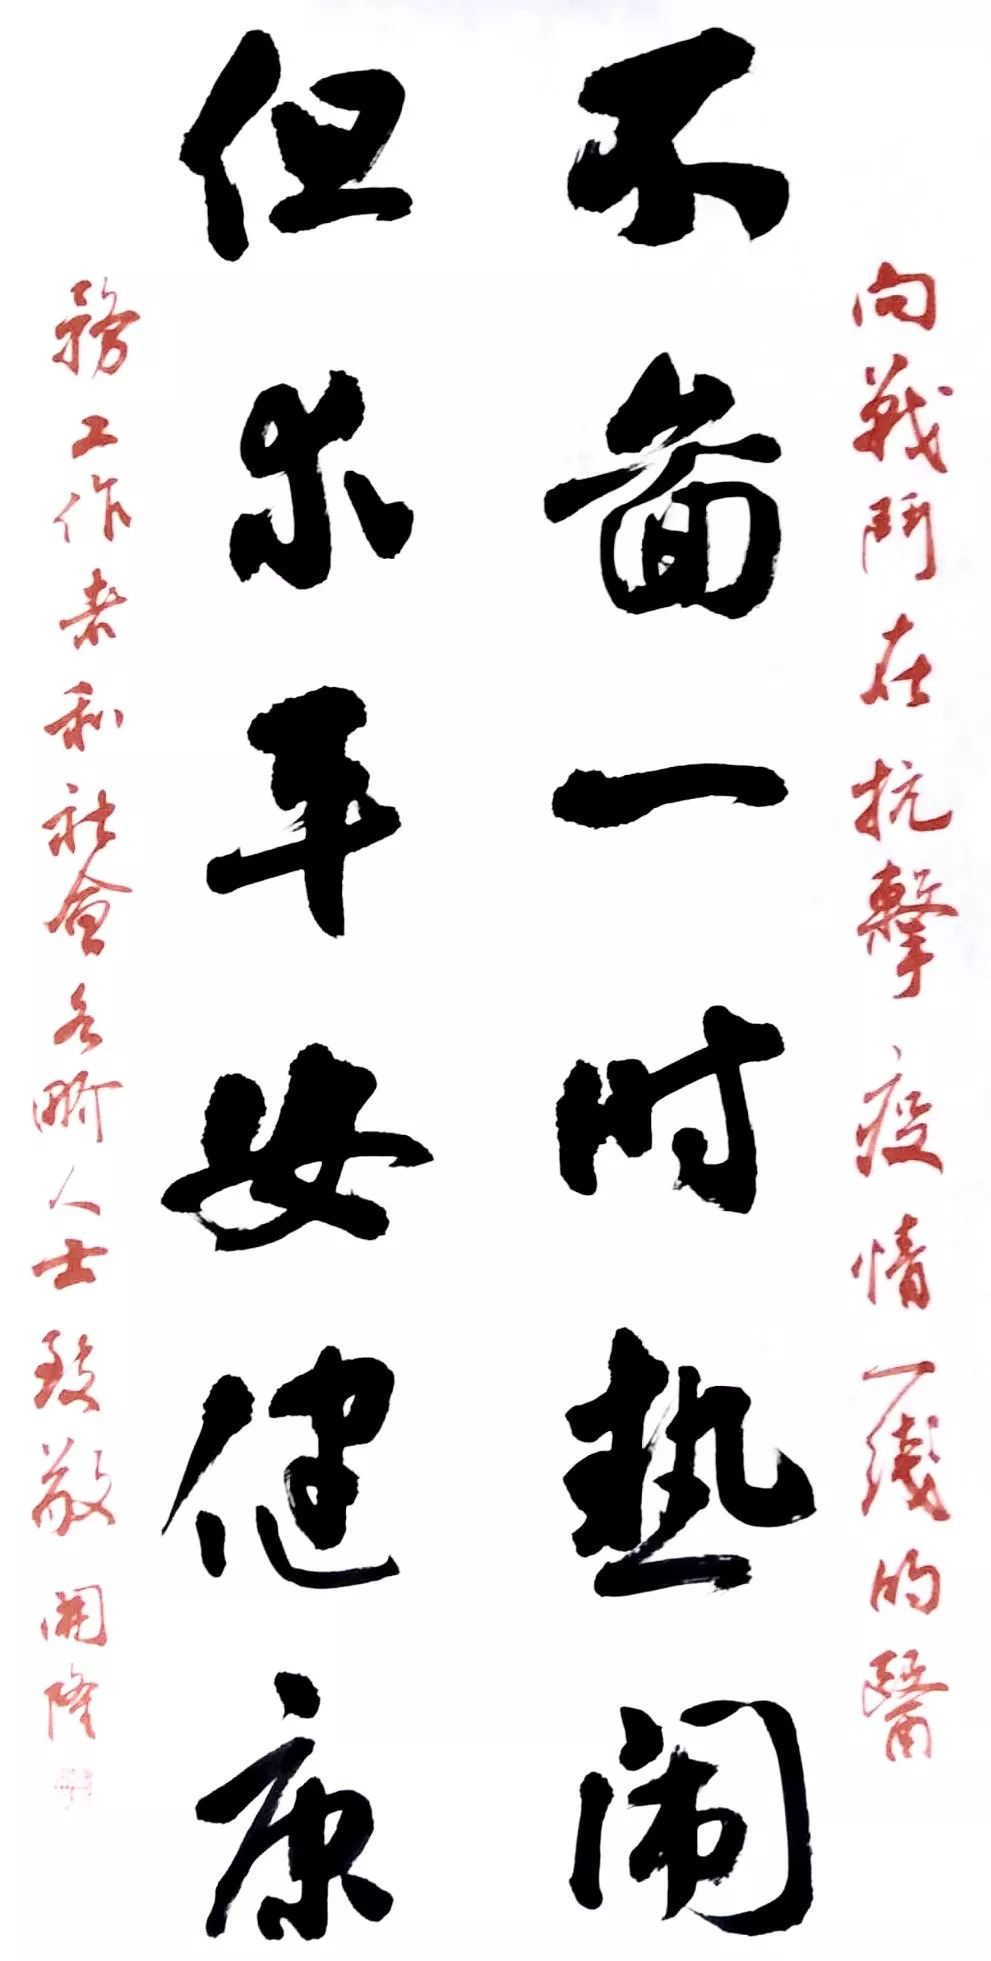 向戰鬥在抗擊疫情一綫的醫
不畵一时热闹
但求平安健康
務工作者和社會各界人士致敬 開隆